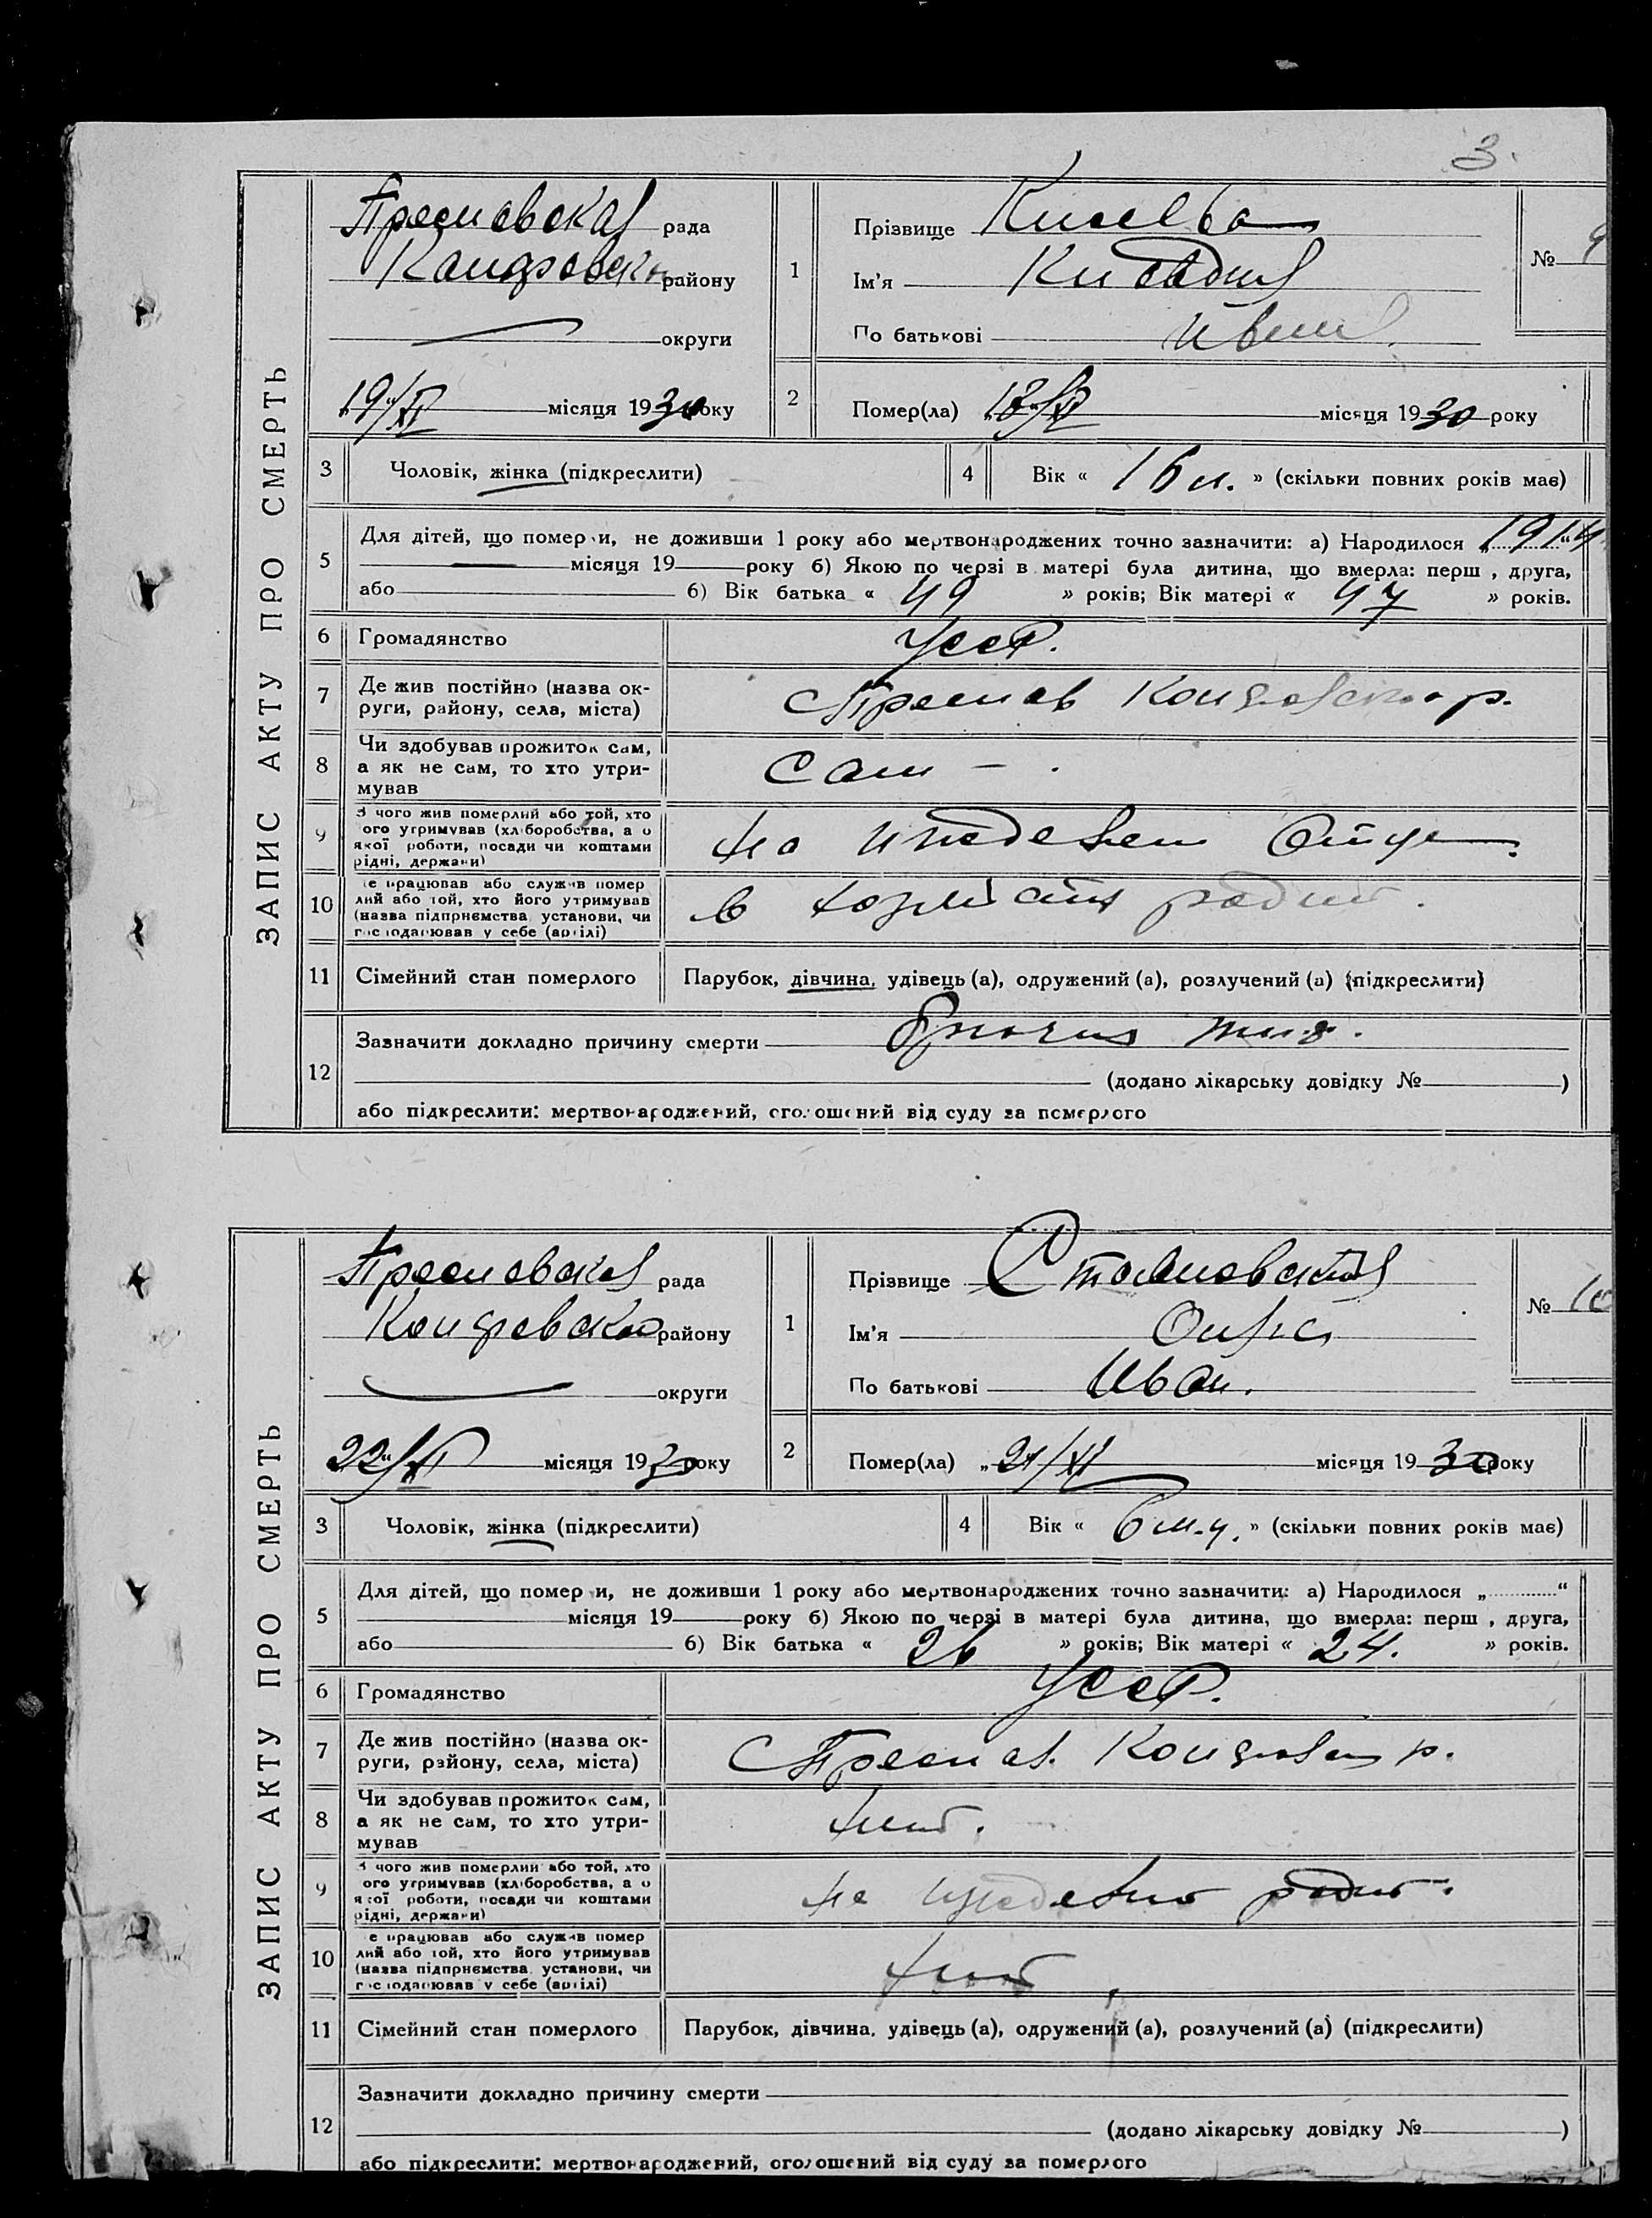 3.
ЗАПИС АКТУ ПРО СМЕРТЬ
рада
району
округи
19/XI місяця 1930 року
1
Прізвище
Ім'я
По батькові
№ 9
2
Помер(ла) 18/XI місяця 1930 року
3 Чоловік, жінка (підкреслити)
4 Вік « 16 л. » (скільки повних років має)
5 Для дітей, що померли, не доживши 1 року або мертвонароджених точно зазначити: а) Народилося „1914
місяця 19 року б) Якою по черзі в матері була дитина, що вмерла: перш , друга,
або б) Вік батька « 49 » років; Вік матері « 47 » років.
6 Громадянство УССР.
7 Де жив постійно (назва ок-
руги, району, села, міста)
с Преслав р.
8 Чи здобував прожиток сам,
а як не сам, то хто утри-
мував
Сам -
9 З чого жив померлий або той, хто
ого утримував (хліборобства, а о
якої роботи, посади чи коштами
рідні, держави)
на иждевен Отца.
10 е працював або служив помер
лий або той, хто його утримував
(назва підприємства установи, чи
господарював у себе (артілі)
в родит.
11 Сімейний стан померлого Парубок, дівчина, удівець (а), одружений (а), розлучений (а) (підкреслити)
12 Зазначити докладно причину смерти
(додано лікарську довідку № )
або підкреслити: мертвонароджений, оголошений від суду за померлого
ЗАПИС АКТУ ПРО СМЕРТЬ
рада
району
округи
22/XI місяця 1930 року
1
Прізвище
Ім'я
По батькові Иван.
№ 10
2
Помер(ла) „21/XI місяця 1930 року
3 Чоловік, жінка (підкреслити)
4 Вік « 6 м-ц. » (скільки повних років має)
5 Для дітей, що померли, не доживши 1 року або мертвонароджених точно зазначити: а) Народилося „ “
місяця 19 року б) Якою по черзі в матері була дитина, що вмерла: перш , друга,
або б) Вік батька « 26 » років; Вік матері « 24. » років.
6 Громадянство УССР.
7 Де жив постійно (назва ок-
руги, району, села, міста)
с Преслав. р.
8 Чи здобував прожиток сам,
а як не сам, то хто утри-
мував
нет.
9 З чого жив померлий або той, хто
ого утримував (хліборобства, а о
якої роботи, посади чи коштами
рідні, держави)
на родит.
10 е працював або служив помер
лий або той, хто його утримував
(назва підприємства установи, чи
господарював у себе (артілі)
нет
11 Сімейний стан померлого Парубок, дівчина, удівець (а), одружений (а), розлучений (а) (підкреслити)
12 Зазначити докладно причину смерти
(додано лікарську довідку № )
або підкреслити: мертвонароджений, оголошений від суду за померлого